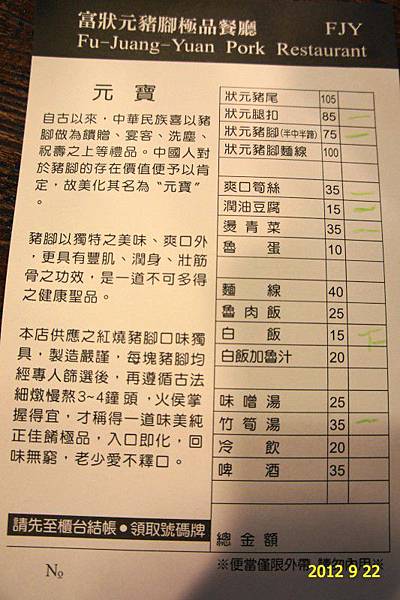 富狀元豬腳極品餐廳 FJY
Fu-Juang-Yuan Pork Restaurant
元寶
自古以來，中華民族喜以豬
腳做為饋贈、宴客、洗塵、
祝壽之上等禮品。中國人對
於豬腳的存在價值便予以肯
定，故美化其名為“元寶”
。
豬腳以獨特之美味、爽口外
，更具有豐肌、潤身、壯筋
骨之功效，是一道不可多得
之健康聖品。
本店供應之紅燒豬腳口味獨
具，製造嚴謹，每塊豬腳均
經專人篩選後，再遵循古法
細燉慢熬3~4鐘頭，火侯掌
握得宜，才稱得一道味美純
正佳餚極品，入口即化，回
味無窮，老少愛不釋口。
請先至櫃台結帳●領取號碼牌
No
狀元豬尾 105
狀元腿扣 85 一
狀元豬腳(半中半蹄) 75 一
狀元豬腳麵線 100
爽口筍絲 35 一
潤油豆腐 15 一
燙青菜 35 一
魯蛋 10
麵線 40
魯肉飯 25
白飯 15 下
白飯加魯汁 20
味噌湯 25
竹筍湯 35 一
冷飲 20
啤酒 35
總金額
※便當僅限外帶，請勿內用※
2012 9 22